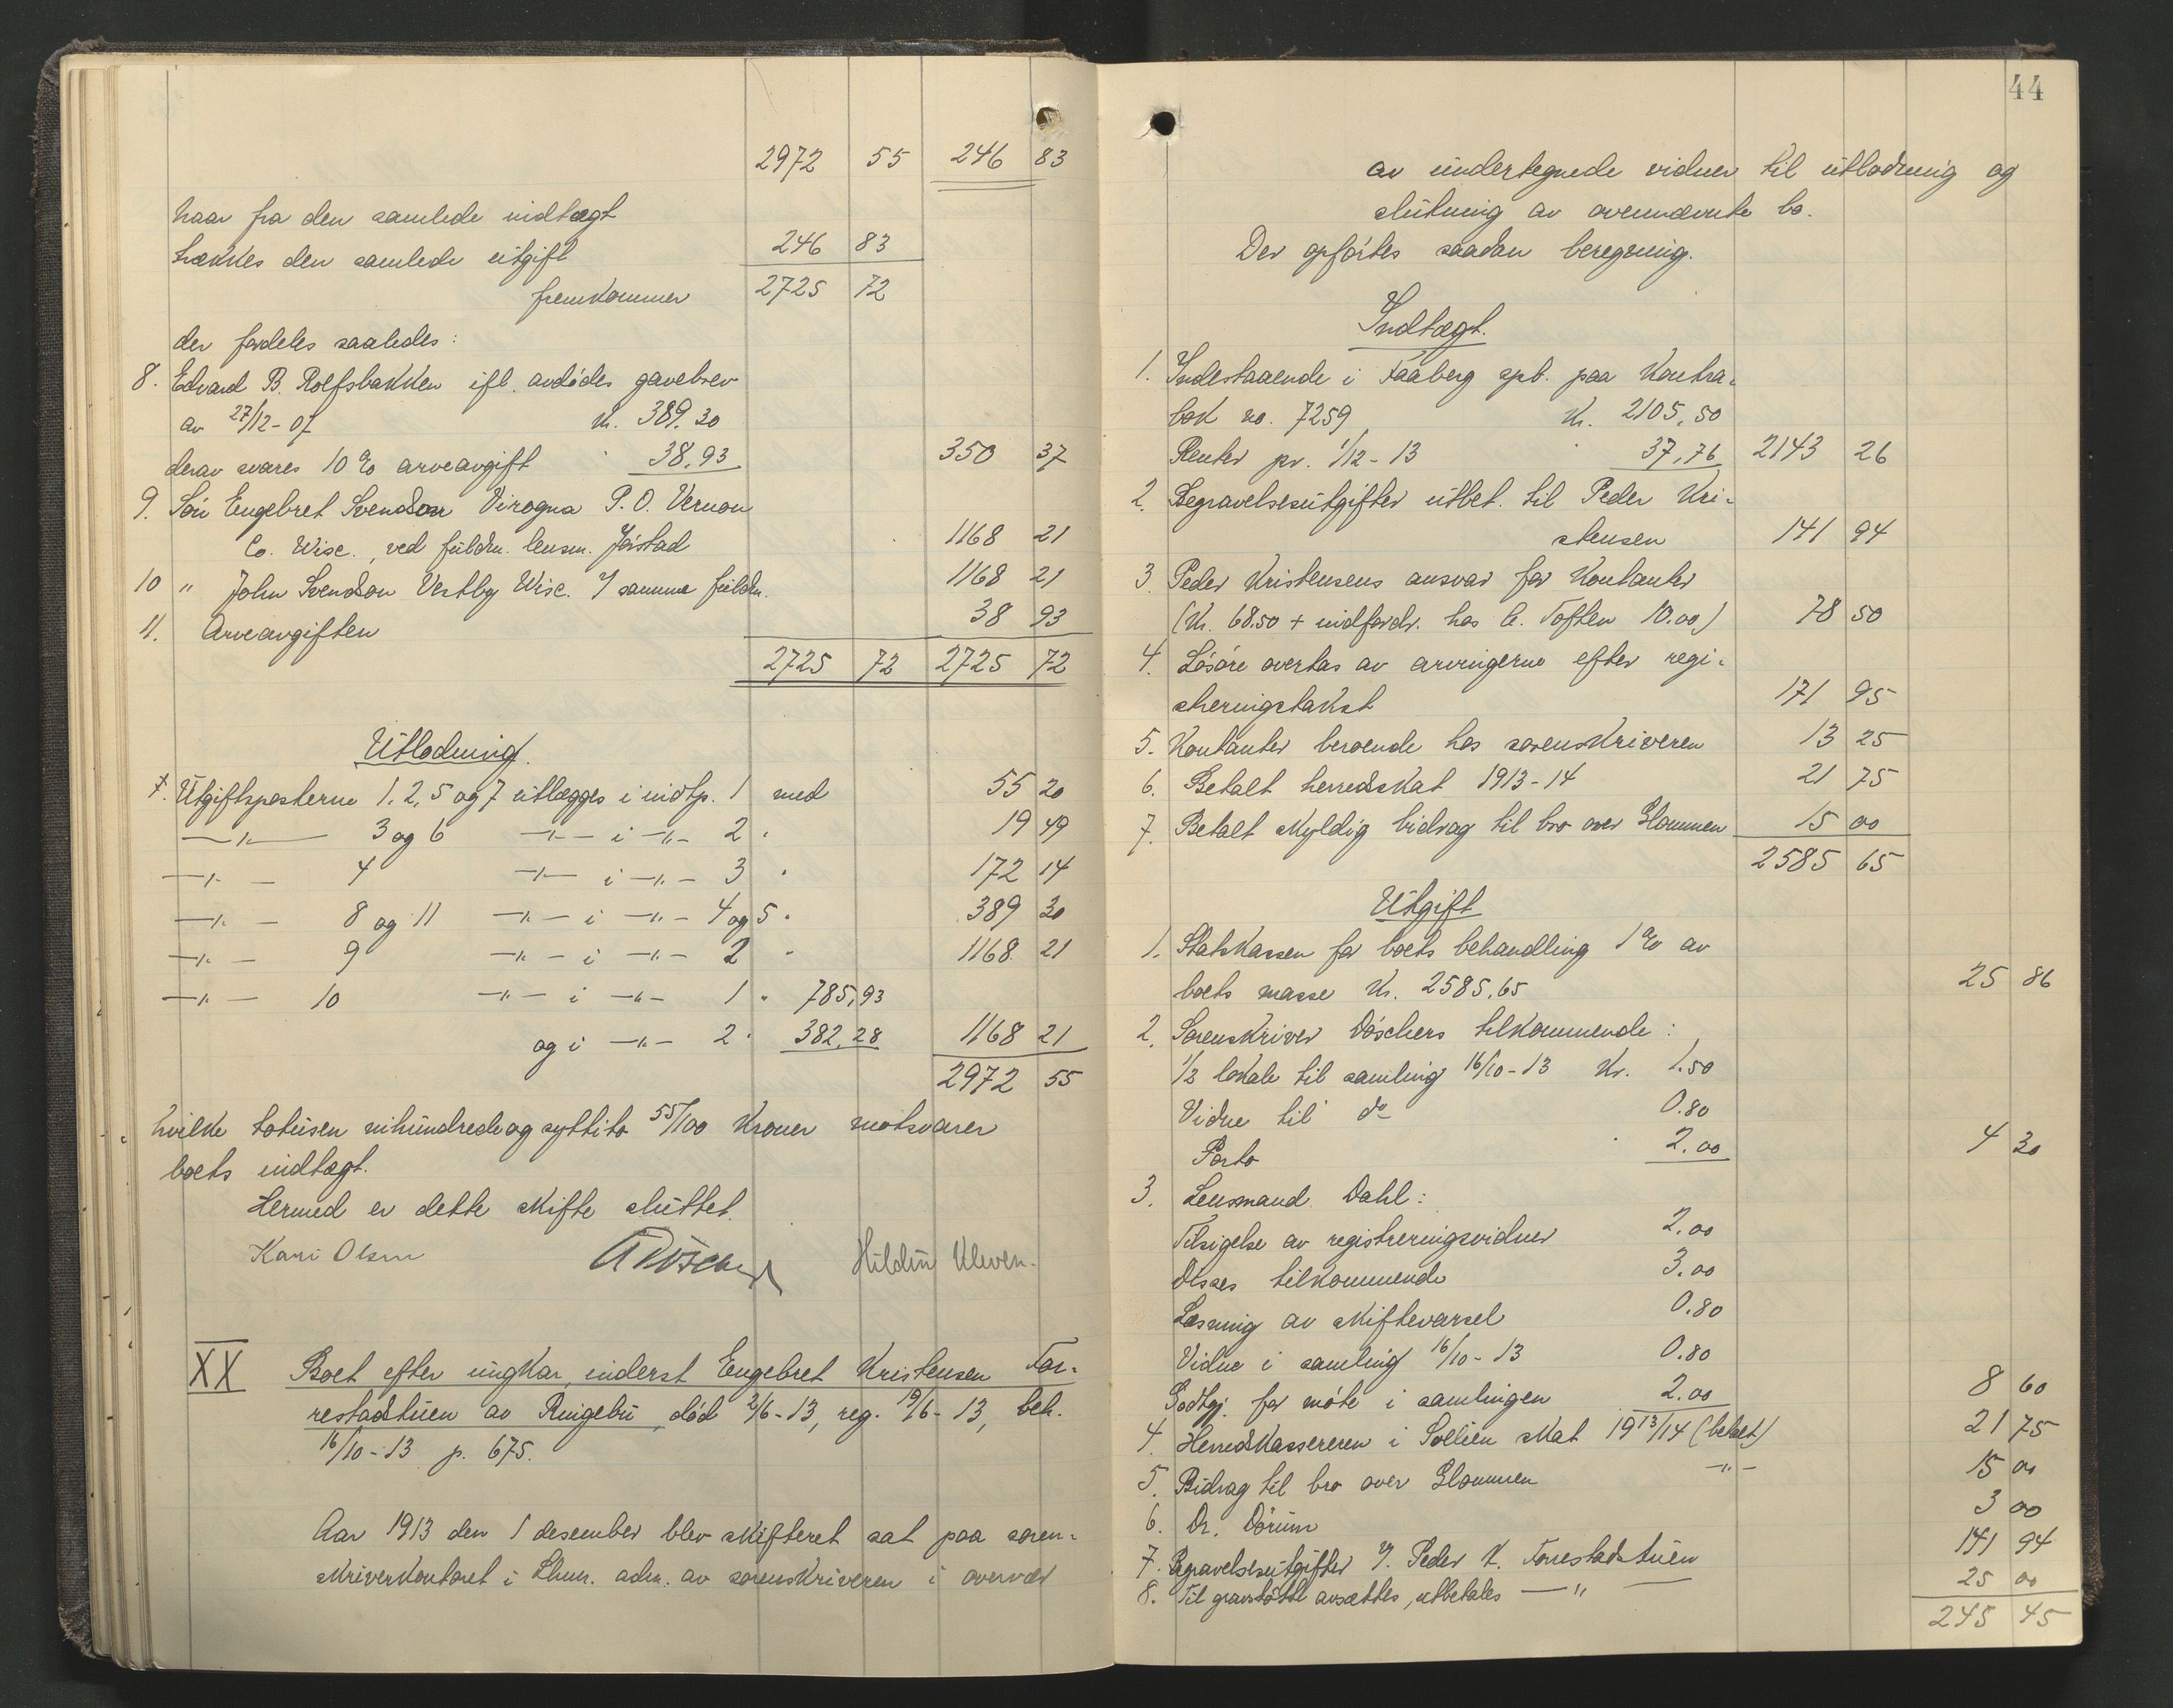 2972 55 246 83
naar fra den samlede indtægt
trækkes den samlede utgift 246 83
fremkommer 2725 72
der fordeles saaledes:
8. Edvard B. Rolfsbakken ifl. avdødes gavebrev
av 27/12-07 Kr. 389.30
derav svares 10 % arveavgift " 38.93 350 37
9. Søn Engebret Svendson Viroqua P.O. Vernon
Co. Wisc., ved fuldm. lensm. Jøistad 1168 21
10 " John Svendson Vestby Wisc. v/ samme fuldm. 1168 21
11. Arveavgiften 38 93
2725 72 2725 72
Utlodning.
Utgiftsposterne 1, 2, 5 og 7 utlægges i indtp. 1 med 55 20
—"— 3 og 6 —"— i —"— 2 " 19 49
—"— 4 —"— i —"— 3 " 172 14
—"— 8 og 11 —"— i —"— 4 og 5 " 389 30
—"— 9 —"— i —"— 2 " 1168 21
—"— 10 —"— i —"— 1 " 785,93
og i —"— 2 " 382.28 1168 21
2972 55
hvilke totusen nihundredeogsyttito 55/100 Kroner motsvarer
boets indtægt.
Hermed er dette skifte sluttet.
Kari Olsen Hildur Kleven.
XX Boet efter ungkar, inderst Engebret Kristensen For-
restadstuen av Ringebu, død 2/6-13, reg. 19/6-13, beh.
16/10-13 p. 675.
Aar 1913 den 1 desember blev skifteret sat paa soren-
skriverkontoret i Lhmr. adm. av sorenskriveren i overvær
44
av undertegnede vidner til utlodning og
slutning av ovennævnte bo.
Der opførtes saadan beregning.
Indtægt.
1. Indestaaende i Faaberg spb. paa Kontra-
bok no. 7259 Kr. 2105,50
Renter pr. 1/12-13 " 37,76 2143 26
2. Begravelsesutgifter utbet. til Peder Kri-
stensen 141 94
3 Peder Kristensens ansvar for Kontanter
(Kr. 68.50 + indfordr. hos C. Toften 10.00) 78 50
4. Løsøre overtas av arvingerne efter regi-
streringstakst 171 95
5. Kontanter beroende hos sorenskriveren 13 25
6. Betalt herredskat 1913-14 21 75
7. Betalt skyldig bidrag til bro over Glommen 15 00
2585 65
Utgift
1. Statskassen for boets behandling 1 % av
boets masse Kr. 2585.65 25 86
2. Sorenskriver Döschers tilkommende:
1/2 lokale til samling 16/10-13 Kr. 1.50
Vidne til do 0.80
Porto " 2.00 4 30
3. Lensmand Dahl:
Tilsigelse av registreringsvidner 2.00
Disses tilkommende 3.00
Læsning av skiftevarsel 0.80
Vidne i samling 16/10-13 0.80
Godtgj. for møte i samlingen 2.00 8 60
4. Herredskassereren i Sollien skat 1913/14 (betalt) 21 75
5. Bidrag til bro over Glommen —"— 15 00
6. Dr. Dörum 3 00
7. Begravelsesutgifter v/. Peder K. Forrestadstuen 141 94
8. Til gravstøtte avsættes, utbetales —"— 25 00
245 45